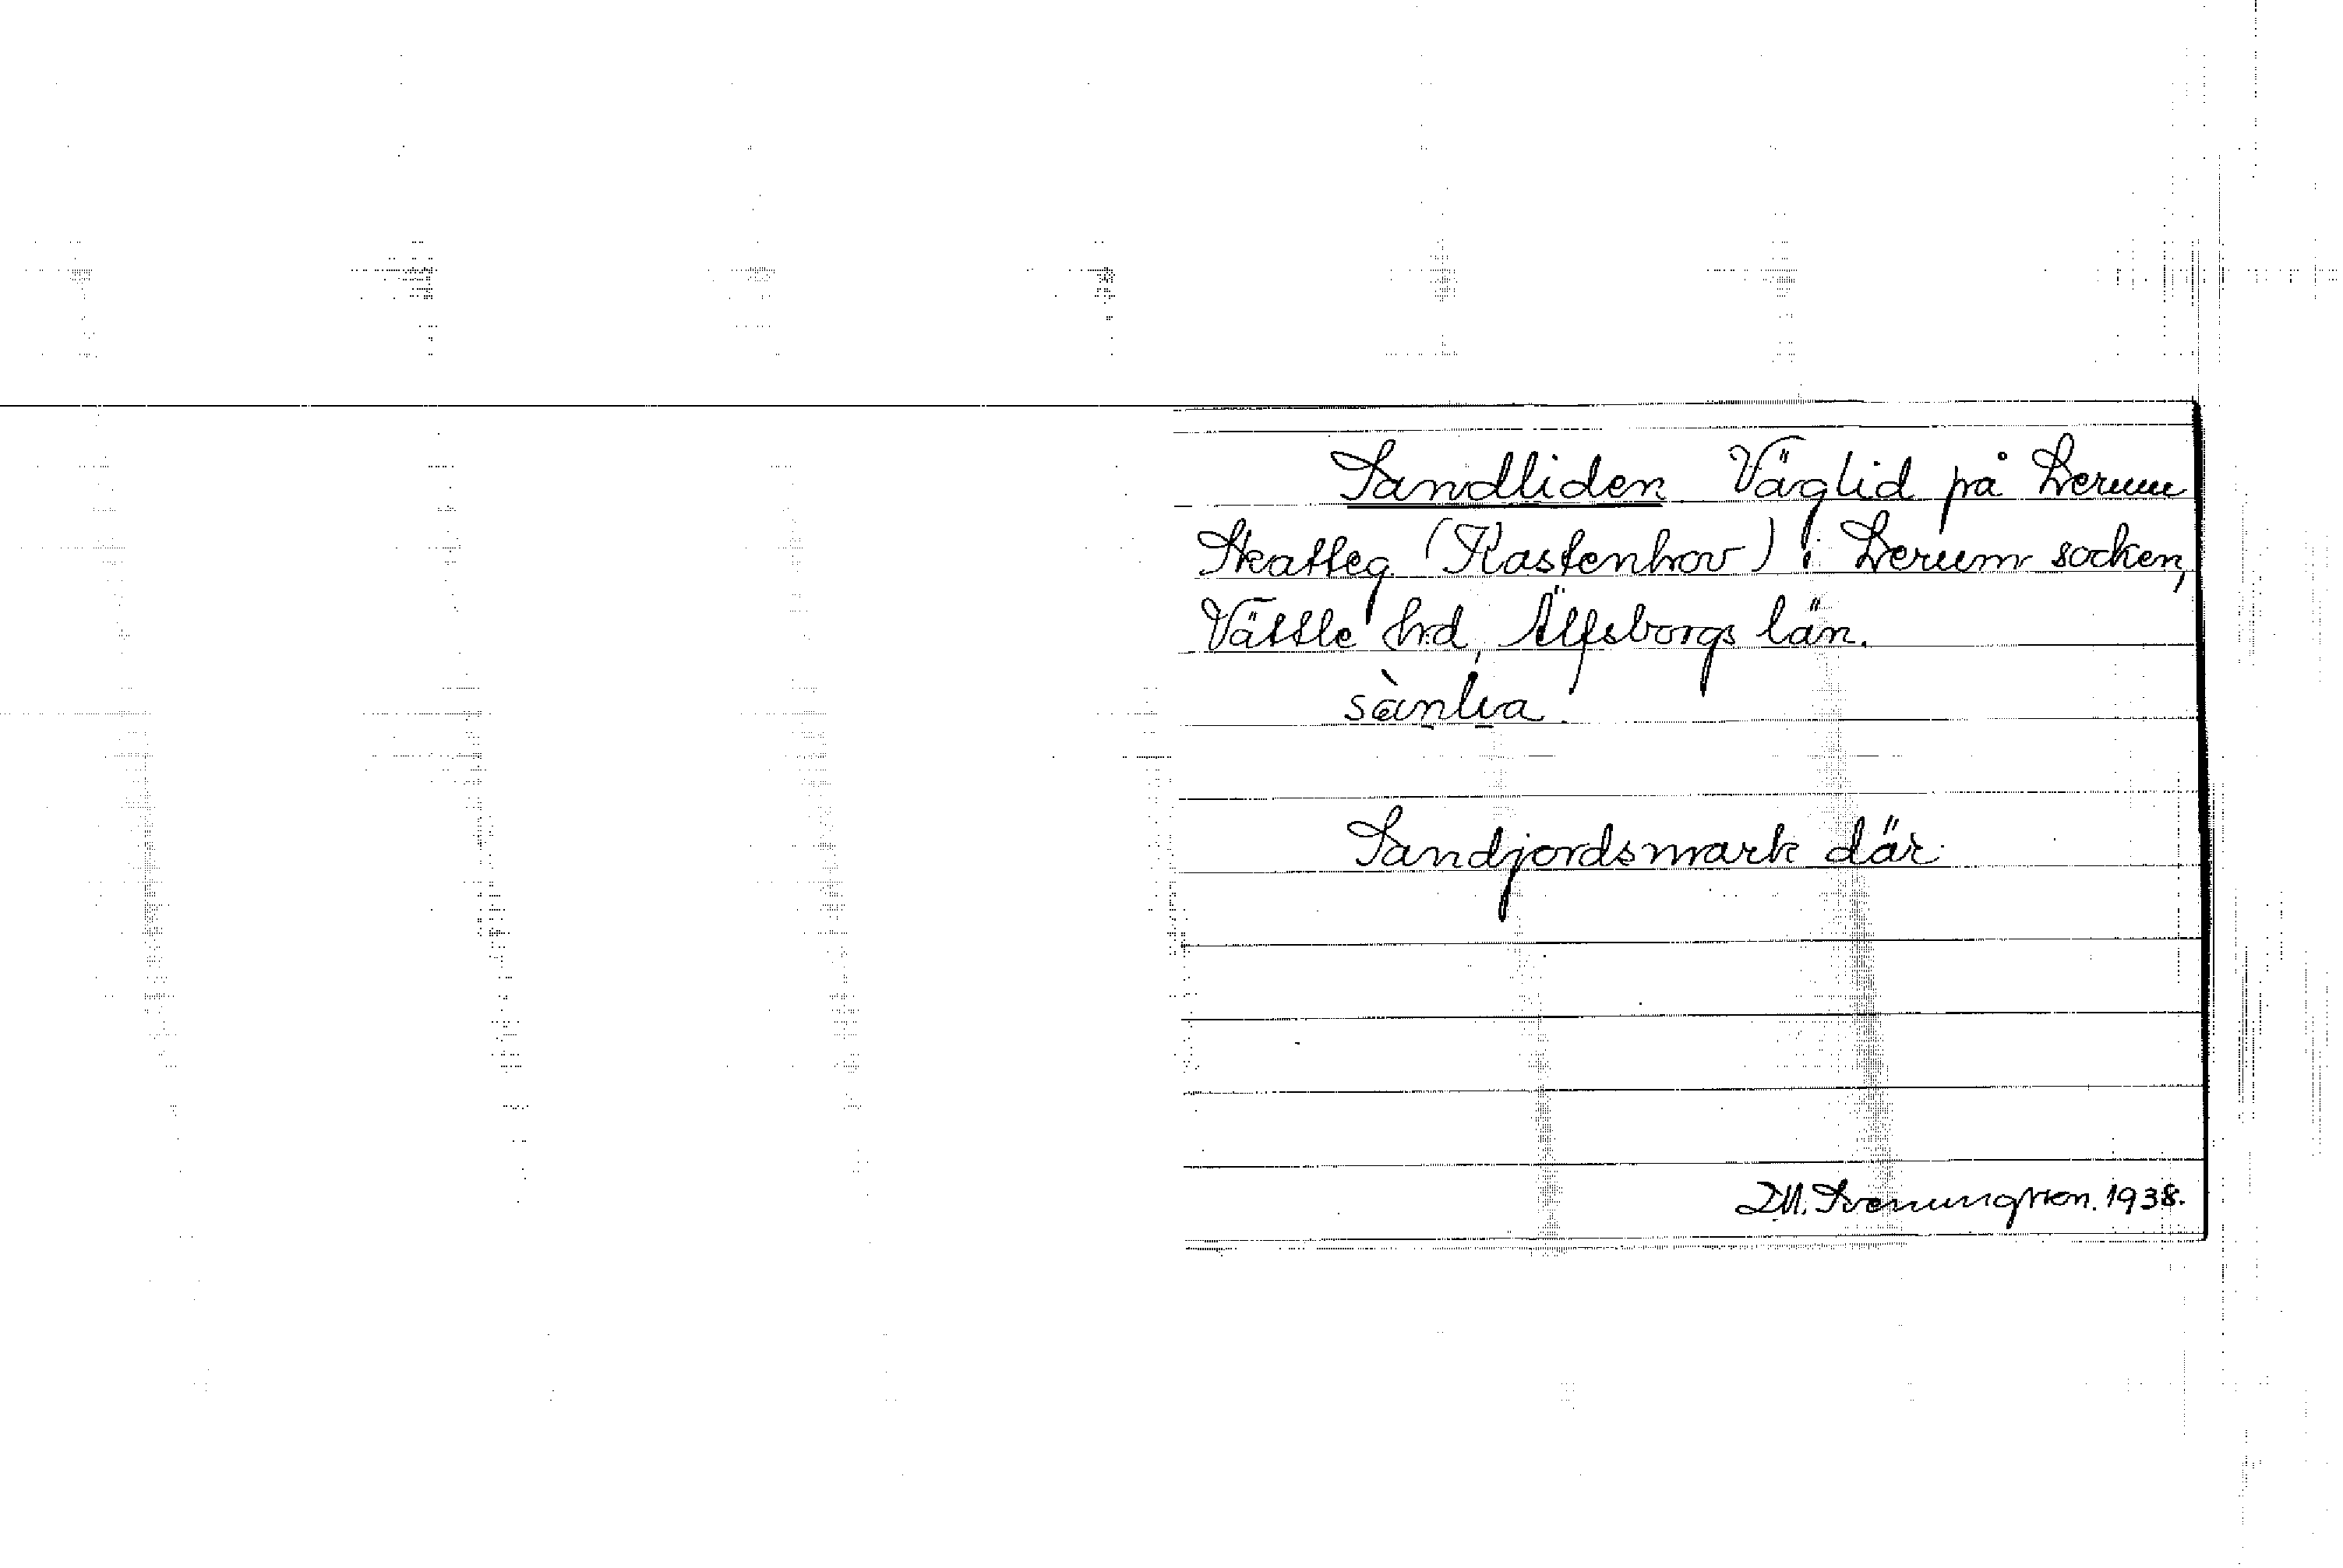 Sandliden. Väglid på Lerum
Skatteg. (Kastenhov) i Lerum socken,
Vättle hrd, Älfsborgs län.
sànlia.
Sandjordsmark där.
D.M. Svenungsson. 1938.